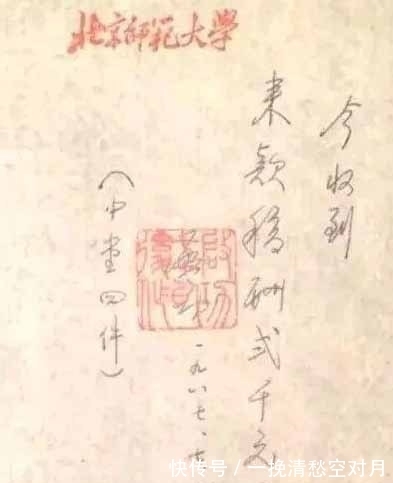 北京師範大學
今收到
来款稿酬弍千元
一九八七、七
（中堂四件）
快传号 / 一挽清愁空对月